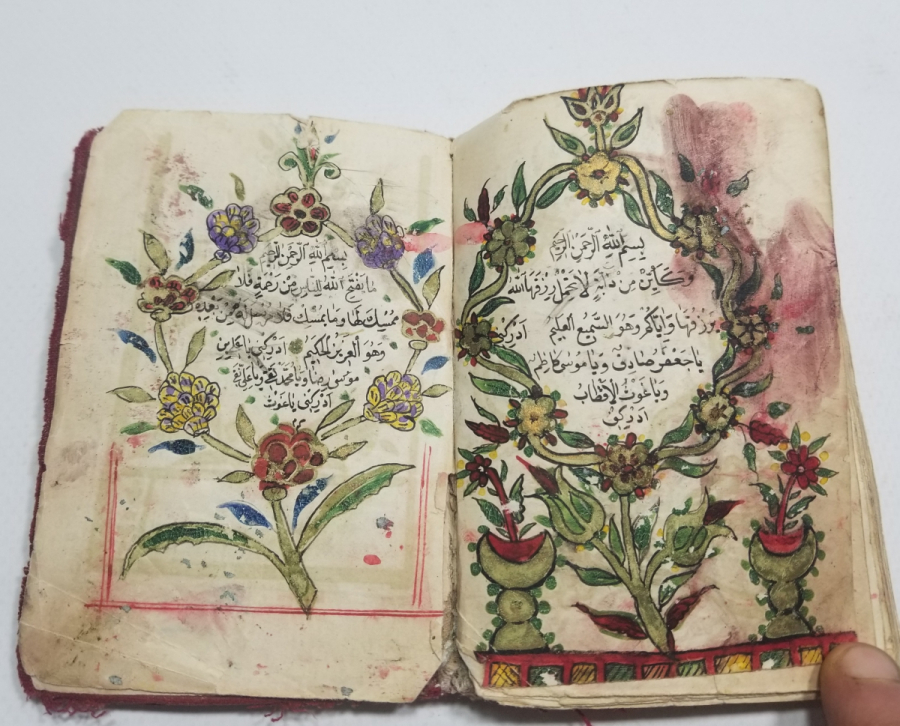 بسم الله الرحمن الرحيم
وكأين من دابة لا تحمل رزقها الله
يرزقها وإياكم وهو السميع العليم ادركني
يا جعفر صادق ويا موسى كاظم
ويا غوث الاقطاب
ادركني
بسم الله الرحمن الرحيم
ما يفتح الله للناس من رحمة فلا
ممسك لها وما يمسك فلا مرسل له من بعده
وهو العزيز الحكيم ادركني يا
موسى رضا ويا محمد تقي ويا
ادركني يا غوث